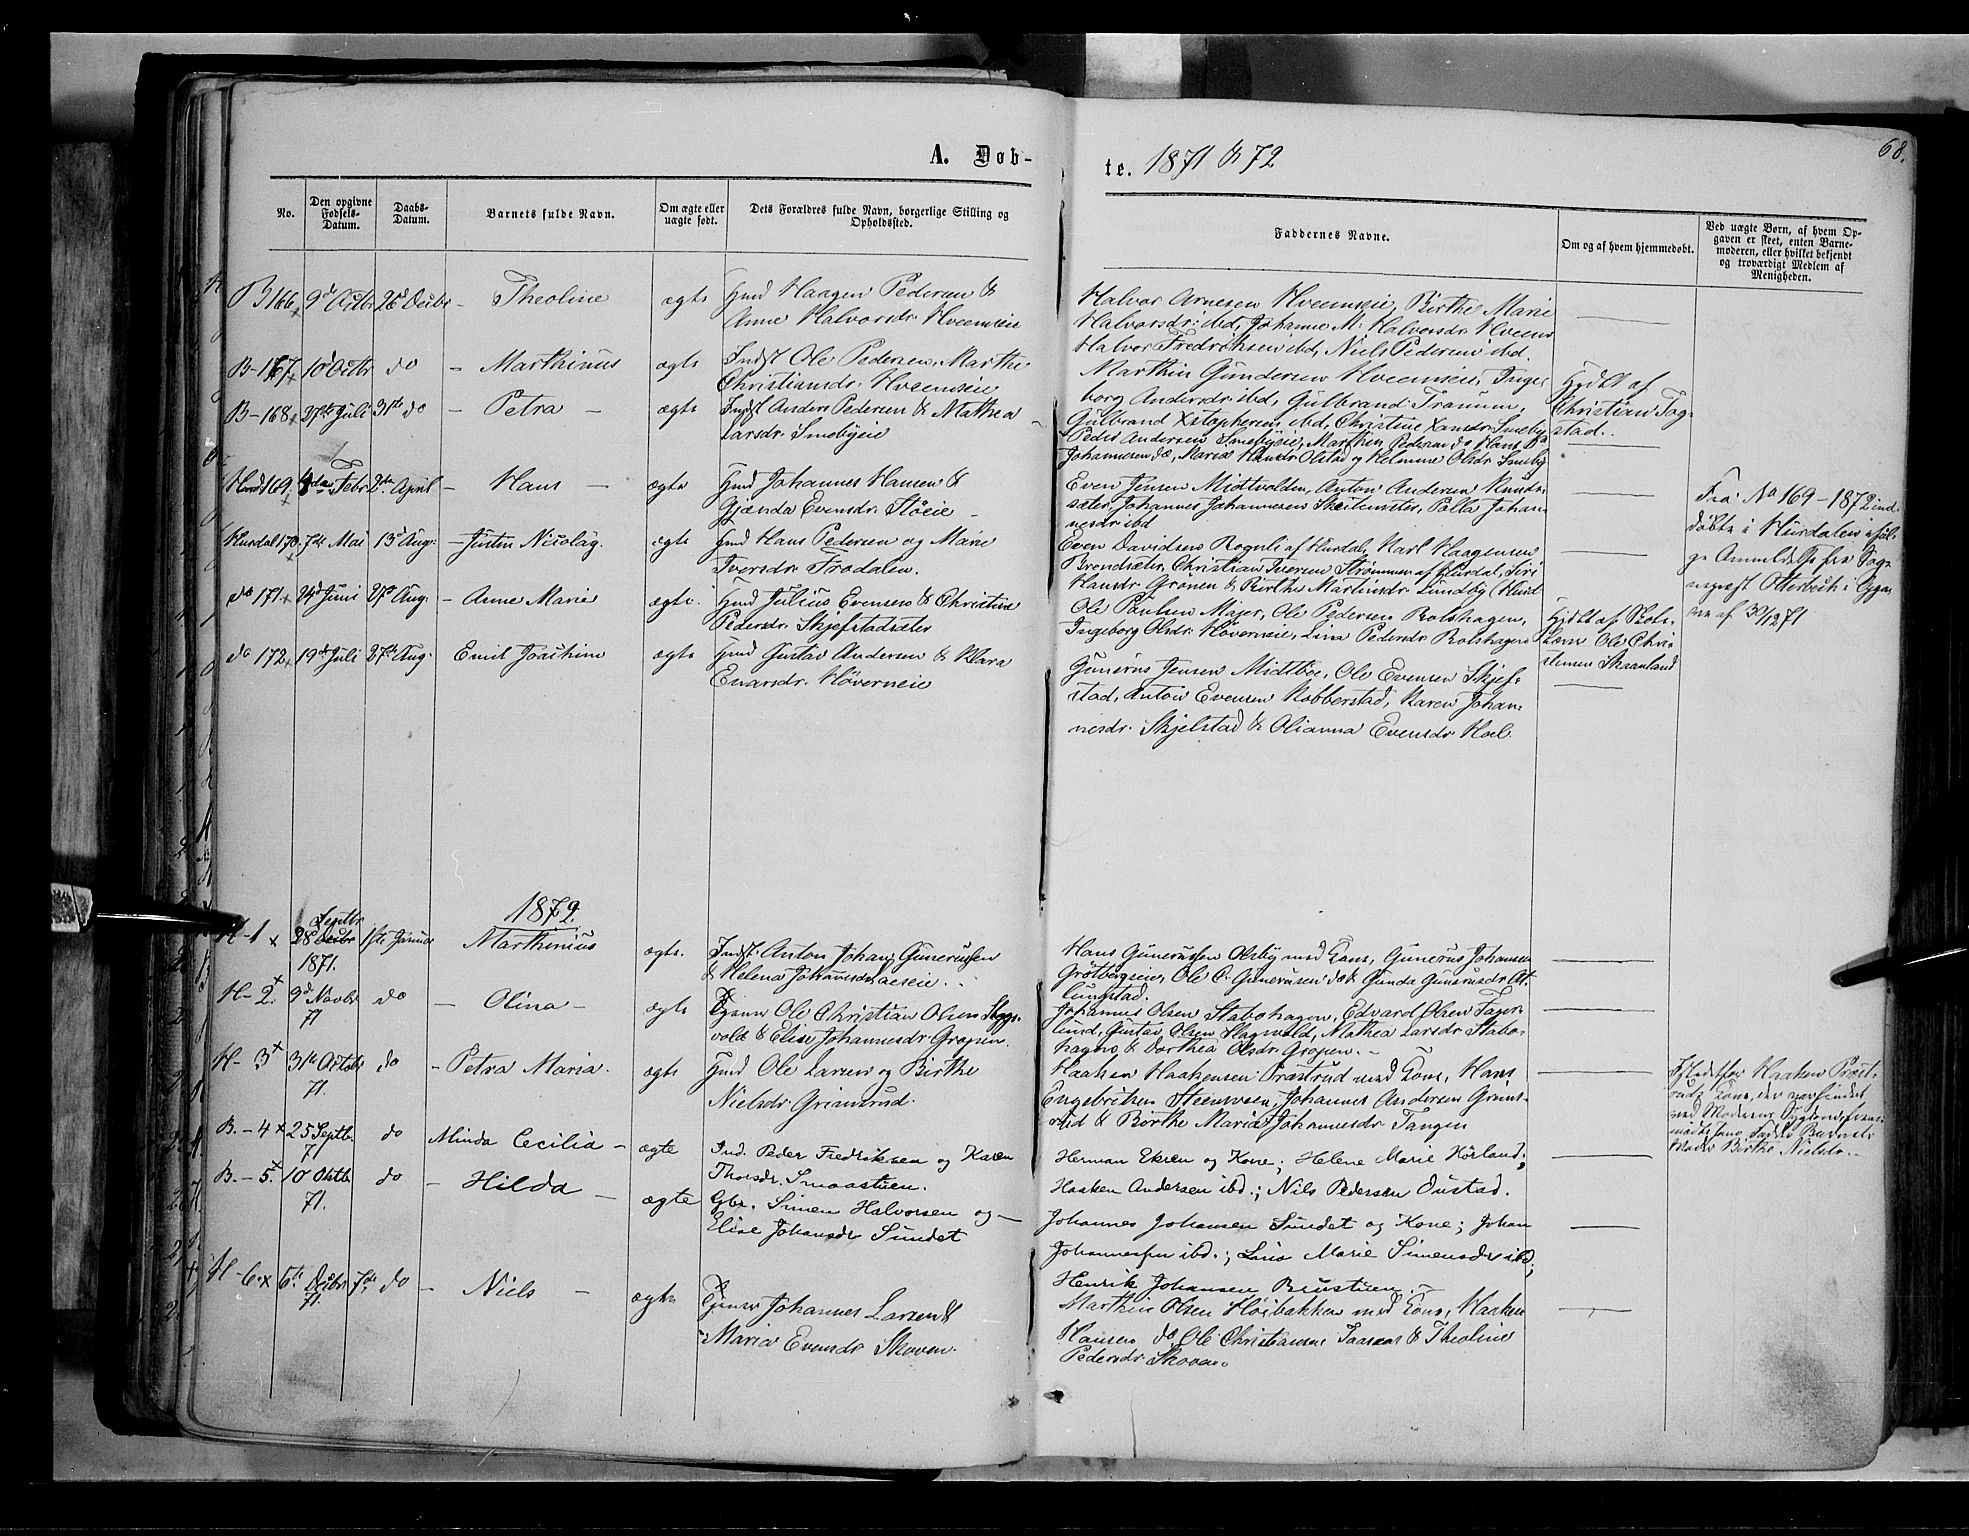 68.
A. Døb-
te. 1871 & 72
No.
Den opgivne Fødsels-Datum.
Daabs-Datum.
Barnets fulde Navn.
Om ægte eller uægte født.
Dets Forældres fulde Navn, borgerlige Stilling og Opholdssted.
Faddernes Navne.
Om og af hvem hjemmedøbt.
Ved uægte Børn, af hvem Opgaven er skeet, enten Barnemoderen, eller hvilket bekjendt og troværdigt Medlem af Menigheden.
B 166 9d Octbr 26d Decbr - Theoline ægte Gmd Haagen Pedersen &
Anne Halvorsdr Hveemseie
Halvor Arnesen Hveemseie, Birthe Marie
Halvorsdr ibd, Johanne M. Halvorsdr Hveems
Halvor Fredriksen ibd, Niels Pedersen ibd.
B-167 10d Octbr do - Marthinus ægte Indst Ole Pedersen, Marthe
Christiansdr Hveemseie
Marthin Gundersen Hveemseie, Inge-
borg Andersdr ibd, Gulbrand Tranum,
Gulbrand Xstophersen ibd, Christine Xansdr Smeby
B-168 27de Juli 31te do - Petra - ægte Indst Anders Pedersen & Mathea
Larsdr Smebyeie
Peder Andersen Smebyeie, Marthin Pedersen do Hans
Johannesen do, Marie Hansdr Olstad og Helmine Olsdr Smeby
Hjdbt af
Christian Tog-
stad.
169 Febr 2den April - Hans - ægte Gmd Johannes Hansen &
Gjænda Evensdr Støeie
Even Jensen Midtvolden, Anton Andersen
sæter, Johannes Johannesen Palla Johan-
nesdr ibd
Hurdal 170 7de Mai 13d Aug: - Justin Nicolay. ægte Gmd Hans Pedersen og Marie
Iversdr Frodalen.
Even Davidsen Rognli af Hurdal, Karl Haagensen
Brendsæter, Christian Iversen Strømmen af Hurdal, Siri
Hansdr Grønen & Birthe Martinsdr Lundby
do 171 24d Juni 27d Aug: - Anne Marie ægte. Gmd Julius Evensen & Christine
Pedersdr Skjefstadsæter
Ole Paulsen Majer, Ole Pedersen Rolshagen,
Ingeborg Olsdr Høverneie, Lina Pedersdr Rolshagen
Hjdbt af Skole-
lærer Ole Chri-
stensen Skaanland
do 172 19d Juli 27de Aug: Emil Joachim ægte Gmd Gustav Andersen & Klara
Evarsdr Høverneie
Gunerus Jensen Midtbøe, Ole Evensen Skjef-
stad, Anton Evensen Kobberstad, Karen Johan-
nesdr Skjelstad & Olianna Evensdr Hoel
Fra No 169-172 ind.
døbte i Hurdalen iføl-
ge Anmeldelse fra Sog-
nepræst Otterbech i
af 30/12 71
1872.
H-1 28 Septbr 1871. 1ste Januar Marthinius ægte. Indst: Anton Johan Gunerusen
& Helena Johannesdr
Hans Gunerussen Olsby med Kone, Gunerus Johansen
Grøtbergseie, Ole C. Gunerusen do & Gunda Gunerusdr At-
lungstad.
H-2. 9d Novbr 71 do - Olina - ægte Ole Christian Olsen Slag-
vold & Elise Johannesdr Gropen.
Johannes Olsen Stabohagen, Edvard Olsen Fager-
lund, Gustav Olsen Slagvold, Mathea Larsdr Stabo-
hagen & Dorthea Olsdr Gropen.
H-3 31te Octobr 71. do - Petra Maria. ægte Gmd Ole Larsen og Birthe
Nielsdr Grimsrud.
Haaken Haakensen Præstrud med Kone, Hans
Engebretsen Johannes Andersen Grims-
rud & Birthe Maria Johannesdr Tangen
Istedetfor Haaken Præst-
ruds Kone, der var hindret
Moder Birthe Nielsdr.
B.-4 25 Septbr. 71 do Minda Cecilia - ægte Ind. Peder Fredriksen og Karen
Thorsdr. Smaastuen.
Herman Ekren og Kone; Helene Marie Hørland,
Haaken Andersen ibd.; Nils Pedersen Oustad.
B.-5. 10 Oktb. 71. do - Hilda - ægte Gbr. Simen Halvorsen og -
Elise Johansdr Sundet
Johannes Johansen Sundet og Kone; Johan
Johannessen ibd.; Lina Marie Simensdr ibd;
Henrik Johansen
H-6. 5te Decbr 71. 7de do - Niels - ægte Johannes Larsen &
Maria Evensdr Skoven.
Marthin Olsen Høibakken med Kone, Haaken
Hansen do Ole Christiansen & Theoline
Pedersdr Skoven.